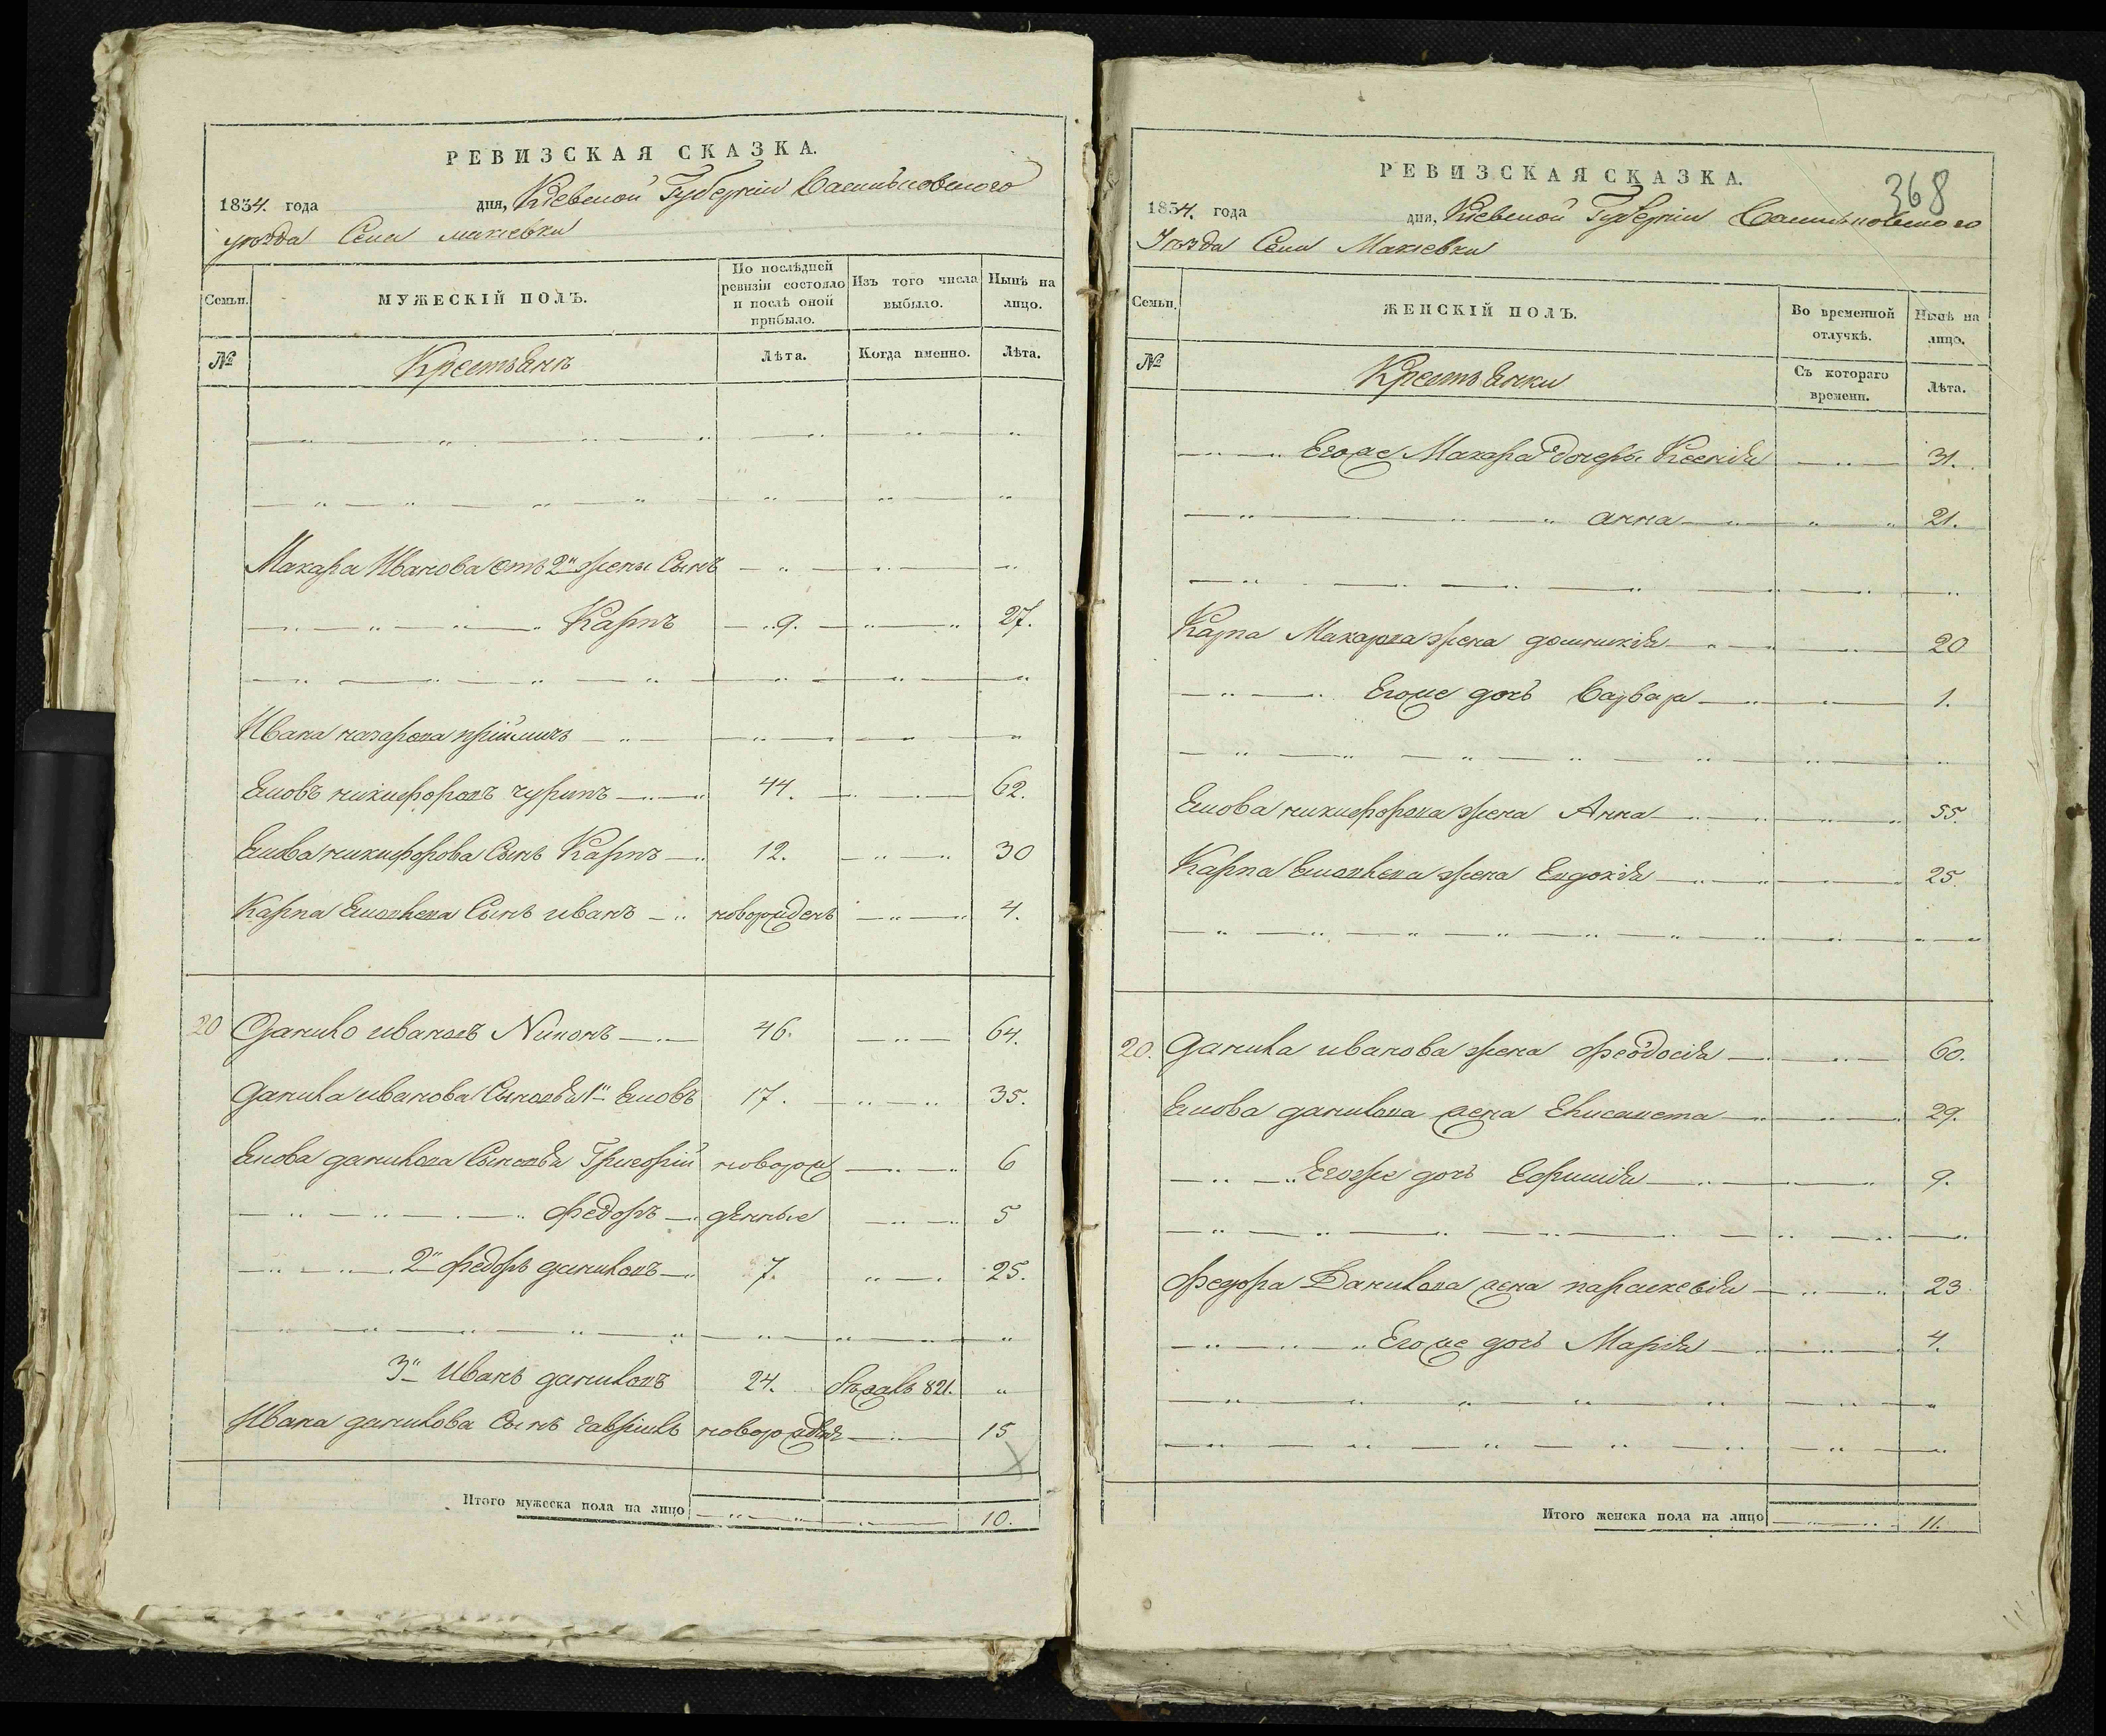 РЕВИЗСКАЯ СКАЗКА.
1834. года дня, Кіевской Губерніи Васильковского
уезда Села макіевки
Семьи.
МУЖЕСКІЙ ПОЛЪ.
По послѣдней ревизіи состояло и послѣ оной прибыло.
Изъ того числа выбыло.
Нынѣ на лицо.
№
Крестьянъ
Лѣта.
Когда именно.
Лѣта.
Макара Иванова отъ 2й жены Сынъ
Карпъ 9. 27.
Ивана назарова пріймичь
Яковъ никифоровъ 44. 62.
Якова никифорова Сынъ Карпъ 12. 30
Карпа Яковлева Сынъ иванъ новорожденъ 4.
20 Данило ивановъ 46. 64.
Данила иванова Сыновья 1й Яковъ 17. 35.
Якова данилова Сыновья Григорій новорож 6
федоръ денные 5
2й федоръ даниловъ 7. 25.
3й Иванъ даниловъ 24. бежалъ 821.
Ивана данилова Сынъ гавріилъ 15
Итого мужеска пола на лицо 10.
368
РЕВИЗСКАЯ СКАЗКА.
1834. года дня, Кіевской Губерніи Васильковского
Уезда Села Макіевки
Семьи.
ЖЕНСКІЙ ПОЛЪ.
Во временной отлучкѣ.
Нынѣ на лицо.
№
Крестьянки
Съ котораго времени.
Лѣта.
Егоже Макара дочеры Ксенія 31.
анна 21.
Карпа Макарова жена домникія 20
Егоже дочь Варвара 1.
Якова никифорова жена Анна 55.
Карпа Яковлева жена Евдокія 25.
20. Данила иванова жена феодосія 60.
Якова данилова жена Елисавета 29.
Егоже дочь 9.
Федора Данилова жена параскевія 23
Егоже дочь Марія 4.
Итого женска пола на лицо 11.